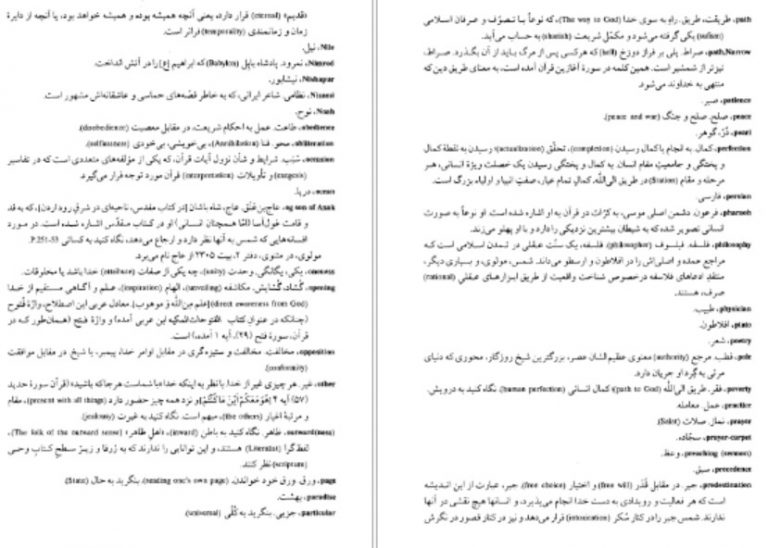 «قدیم» (eternal) قرار دارد، یعنی آنچه همیشه بوده و همیشه خواهد بود، یا آنچه از دایرهٔ
زمان و زمانمندی (temporality) فراتر است.
Nile، نیل.
Nimrod، نمرود. پادشاه بابل (Babylon) که ابراهیم [ع] را در آتش انداخت.
Nishapur، نیشاپور.
Nizami، نظامی. شاعر ایرانی، که به خاطر قصّه‌های حماسی و عاشقانه‌اش مشهور است.
Noah، نوح.
obedience، طاعت. عمل به احکام شریعت، در مقابل معصیت (disobedience).
obliteration، محو. فنا (Annihilation)، بی‌خویشی، بی‌خودی (selflessness).
occasion، سَبَب. شرایط و شأن نزول آیات قرآن، که یکی از مؤلفه‌های متعددی است که در تفاسیر
(exegesis) و تأویلات (interpretation) قرآن مورد توجه قرار می‌گیرد.
ocean، دریا.
og son of Anak، عاج‌بن‌عُنُق. عاج، شاه باشان [در کتاب مقدس، ناحیه‌ای در شرقِ رود اردن]، که به قد
و قامت غول‌آسا (امّا همچنان انسانی) او در کتاب مقدّس اشاره شده است. در مورد
افسانه‌هایی که شمس به آنها نظر دارد و ارجاع می‌دهد، نگاه کنید به کسائی P.251-53
مولوی، در مثنوی، دفتر ۲، بیت ۲۳۰۵ از عاج نام می‌برد.
oneness، یکی، یگانگی. وحدت (unity)، چه یکی از صفات (attribute) خدا باشد یا مخلوقات.
opening، گشاد، گشایش. مکاشفه (unveiling)، الهام (inspiration)، علم و آگاهی مستقیم از خدا
(direct awareness from God) [علم مِن‌اللّه و موهوب]. معادل عربی این اصطلاح، واژهٔ فتوح
(چنانکه در عنوان کتاب الفتوحات‌المکیه ابن عربی آمده) و واژهٔ فتح (همان‌طور که در
قرآن، سورهٔ فتح (۲۹)، آیه ۱ آمده) است.
opposition، مخالفت. مخالفت و ستیزه‌گری در مقابل اوامر خدا، پیمبر، یا شیخ. در مقابل موافقت
(conformity).
other، غیر. هر چیزی غیر از خدا. با نظر به اینکه خدا «با شماست هر جا که باشید» (قرآن سورهٔ حدید
(۵۷) آیه ۴ [هُوَ مَعَکُمْ اَیْنَ ماکُنْتُمْ] و نزد همه چیز حضور دارد (present with all things)، مقام
و مرتبهٔ اغیار (the others)، مبهم است. نگاه کنید به غیرت (jealousy).
outward(ness)، ظاهر. نگاه کنید به باطن (inward)، «اهلِ ظاهر» (The folk of the outward sense)،
لفظ‌گرا (Literalist) هستند، و این توانایی را ندارند که به ژرفا و زیرِ سطحِ کتاب وحی
(scripture) نظر کنند.
page، ورق. ورق خود خواندن (reading one's own page)، بنگرید به حال (State).
paradise، بهشت.
particular، جزیی. بنگرید به کُلّی (universal).
path، طریقت، طریق. راهِ به سوی خدا (The way to God)، که نوعاً با تصوّف و عرفان اسلامی
(sufism) یکی گرفته می‌شود و مکمّل شریعت (shariah) به حساب می‌آید.
path,Narrow، صراط. پلی بر فراز دوزخ (hell) که هرکسی پس از مرگ باید از آن بگذرد. صراط،
تیزتر از شمشیر است. همین کلمه در سورهٔ آغازین قرآن آمده است، به معنای طریق دین که
منتهی به خداوند می‌شود.
patience، صبر.
peace، صلح. صلح و جنگ (peace and war).
pearl، دُرّ، گوهر.
perfection، کمال. به انجام یا کمال رسیدن (completion)، تحقّق (actualization)؛ رسیدن به نقطهٔ کمال
و پختگی و جامعیتِ مقام انسان. به کمال و پختگی رسیدن یک خصلت ویژهٔ انسانی، هر
مرحله و مقام (Station) در طریق الی‌اللّه. کمالِ تمام عیار، صفتِ انبیا و اولیاء بزرگ است.
persian، فارسی.
pharaoh، فرعون. دشمن اصلی موسی، به کرّات در قرآن به او اشاره شده است. او نوعاً به صورت
انسانی تصویر شده که به شیطان بیشترین نزدیکی را دارد و با او پهلو می‌زند.
philosophy، فلسفه. فیلسوف (philosopher). فلسفه، یک سنّت عقلی در تمدن اسلامی است که
مراجع عمده و اصلی‌اش را در افلاطون و ارسطو می‌داند. شمس، مولوی، و بسیاری دیگر،
منتقدِ ادعاهای فلاسفه درخصوص شناخت واقعیت از طریق ابزارهای عقلیِ (rational)
صرف، هستند.
physician، طبیب.
plato، افلاطون.
poetry، شعر.
pole، قطب. مرجع (authority) معنوی عظیم‌الشان عصر، بزرگترین شیخ روزگار، محوری که دنیای
مرئی به گِردِ او جریان دارد.
poverty، فقر. طریق الی‌اللّه (path to God)؛ کمال انسانی (human perfection). نگاه کنید به درویش.
practice، عمل. معامله.
prayer، نماز. صلات (Salat).
prayer-carpet، سجّاده.
preaching (sermon)، وعظ.
precedence، سبق.
predestination، جبر. در مقابل قَدَر (free will) و اختیار (free choice). جبر، عبارت از این اندیشه
است که هر فعالیت و رویدادی به دست خدا انجام می‌پذیرد، و انسانها هیچ نقشی در آنها
ندارند. شمس جبر را در کنار سُکر (intoxication) قرار می‌دهد و نیز در کنار قصور در نگرش